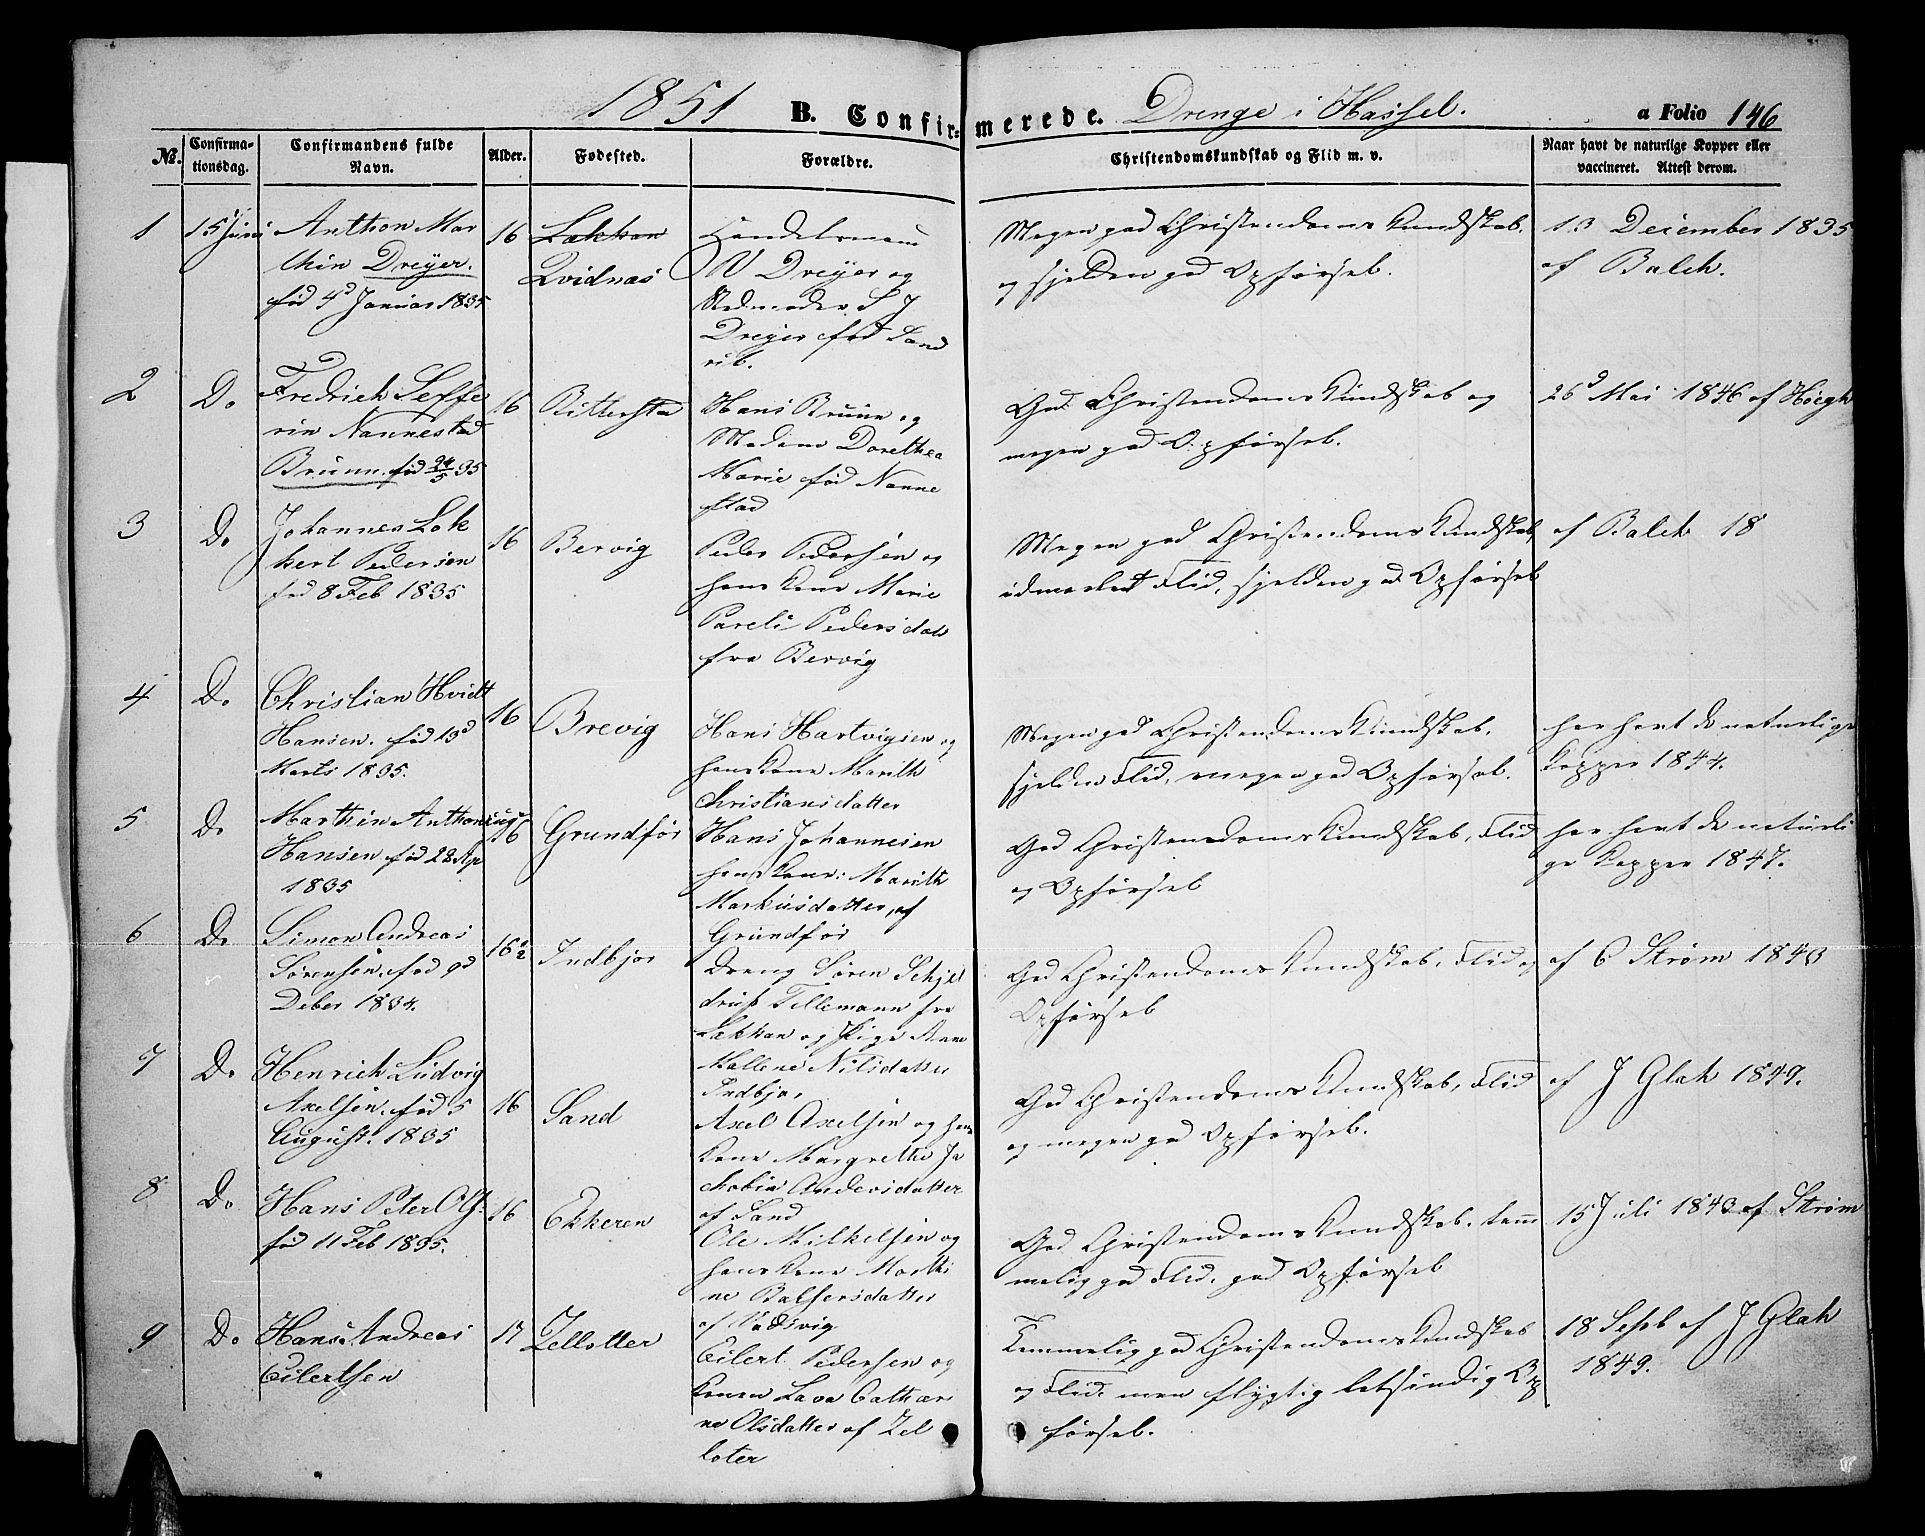 1851 B. Confirmerede. Drenge i Hassel. a Folio 146
No. Confirmationsdag. Confirmandens fulde Navn. Alder. Fødested. Forældre. Christendomskundskab og Flid m. v. Naar havt de naturlige Kopper eller vaccineret. Attest derom.
1 15 Juni
Anthon Mar
thin Dreyer.
fød 4d Januar 1835
16
Løkhan
Qvidnæs
Handelsmand
Dreyer og
Madmoder S J
Dreyer fød Land
rib.
Megen god Christendoms Kundskab.
og sjelden god Opførsel.
13 December 1835
af Balch.
2 Do
Fredrich Seffe
rin Nannestad
Bruun. fød 24/5 35
16
Rittersta
Hans Bruun og
Madame Dorethea
Marie fød Nanne
stad
God Christendoms Kundskab og
megen god Opførsel.
26d Mai 1846 af Høegh
3 Do
Johannes Lok
kert Pedersen
fød 8 Feb 1835
16
Bervig
Peder Pedersen og
hans Kone Marie
Pareli Pedersdatt
fra Bervig
Megen god Christendoms Kundskab,
udmærket Flid, sjelden god Opførsel
af Balch 18
4 Do
Christian Hvidt
Hansen. fød 13d
Marts 1835.
16
Brevig
Hans Hartvigsen og
hans Kone Marith
Christiansdatter
Megen god Christendoms Kundskab,
sjelden Flid, megen god Opførsel.
har havt de naturlige
Kopper 1844.
5 Do
Marthin Anthonius
Hansen fød 28 Ap
1835
16
Grundfør
Hans Johannesen
hans Kone: Marith
Markusdatter, af
Grundfør
God Christendoms Kundskab, Flid
og Opførsel
har havt de naturli
ge Kopper 1847.
6 Do
Simon Andreas
Sørensen. fød 9d
Deber 1834.
16½
Indbjor
Dreng Søren Schjel
drup Tellemann fra
Løkhan og Pige Anne
Mallene Nilsdatter
Indbjor
God Christendoms Kundskab, Flid og
Opførsel
af C Strøm 1843
7 Do
Henrich Ludvig
Axelsen. fød 5
August. 1835
16
Sand
Axel Axelsen og hans
Kone Margrethe Ja
chobia Andersdatter
af Sand
God Christendoms Kundskab, Flid
og megen god Opførsel.
af J Glak 1849.
8 Do
Hans Peter Ols.
fød 11 Feb 1835.
16
Ekkeren
Ole Mikkelsen og
hans Kone Marthi
ne Balsersdatter
af Vadsvig
God Christendoms Kundskab. tem
melig god Flid, god Opførsel
15 Juli 1843 af Strøm
9 Do
Hans Andreas
Eilertsen
17
Zellotter
Eilert Pedersen og
Konen Lava Cathari
ne Olsdatter af Zel
loter
Temmelig god Christendoms Kundskab
og Flid. men flygtig letsindig Op
førsel.
18 Sepb af J Glak
1849.